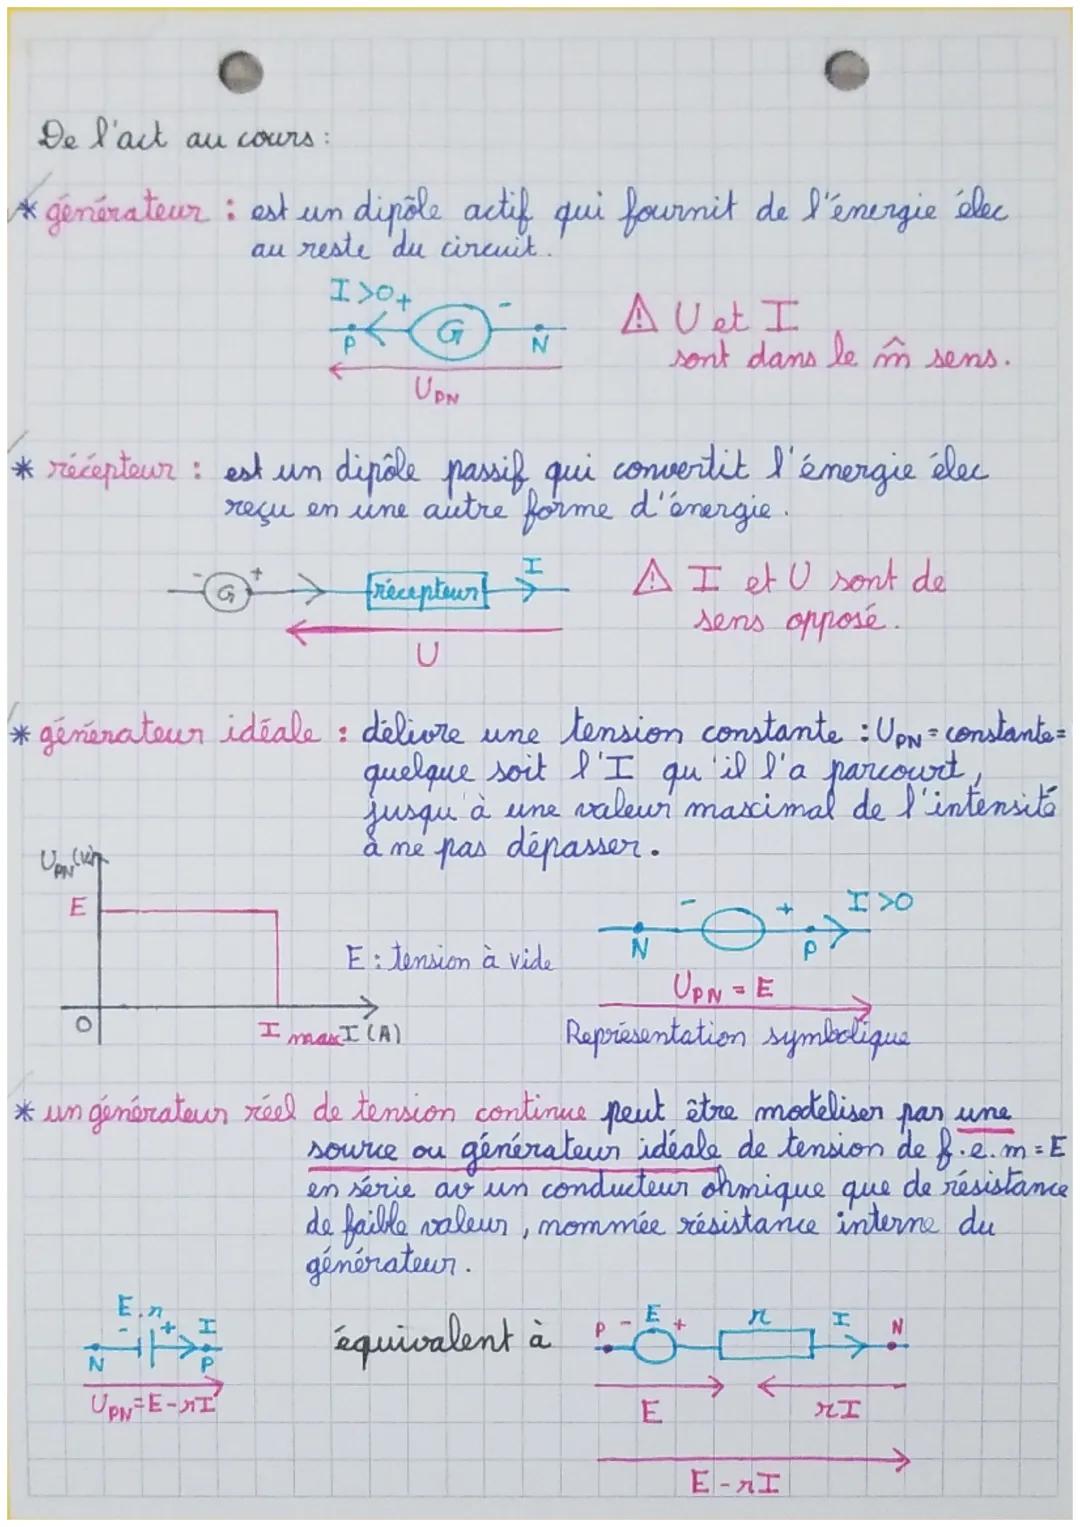 De l'act au cours :
* générateur : est un dipôle actif qui fournit de l'énergie élec
au reste du circuit.
I>0 + -
P G N
U PN
⚠ U et I
sont dans le m̂ sens.
* récepteur : est un dipôle passif qui convertit l'énergie élec
reçu en une autre forme d'énergie.
- G + récepteur I
U
⚠ I et U sont de
sens opposé.
* générateur idéale : délivre une tension constante : UPN = constante =
quelque soit l'I qu'il l'a parcourt,
jusqu'à une valeur maximal de l'intensité
à ne pas dépasser.
UPN (V)
E
0
I max I (A)
E : tension à vide
- + I>0
N P
UPN = E
Représentation symbolique
* un générateur réel de tension continue peut être modéliser par une
source ou générateur idéale de tension de f.e.m = E
en série av un conducteur ohmique que de résistance
de faible valeur, nommée résistance interne du
générateur.
E.r
- + I
N P
UPN = E - rI
équivalent à
P - E + r I N
E rI
E - rI